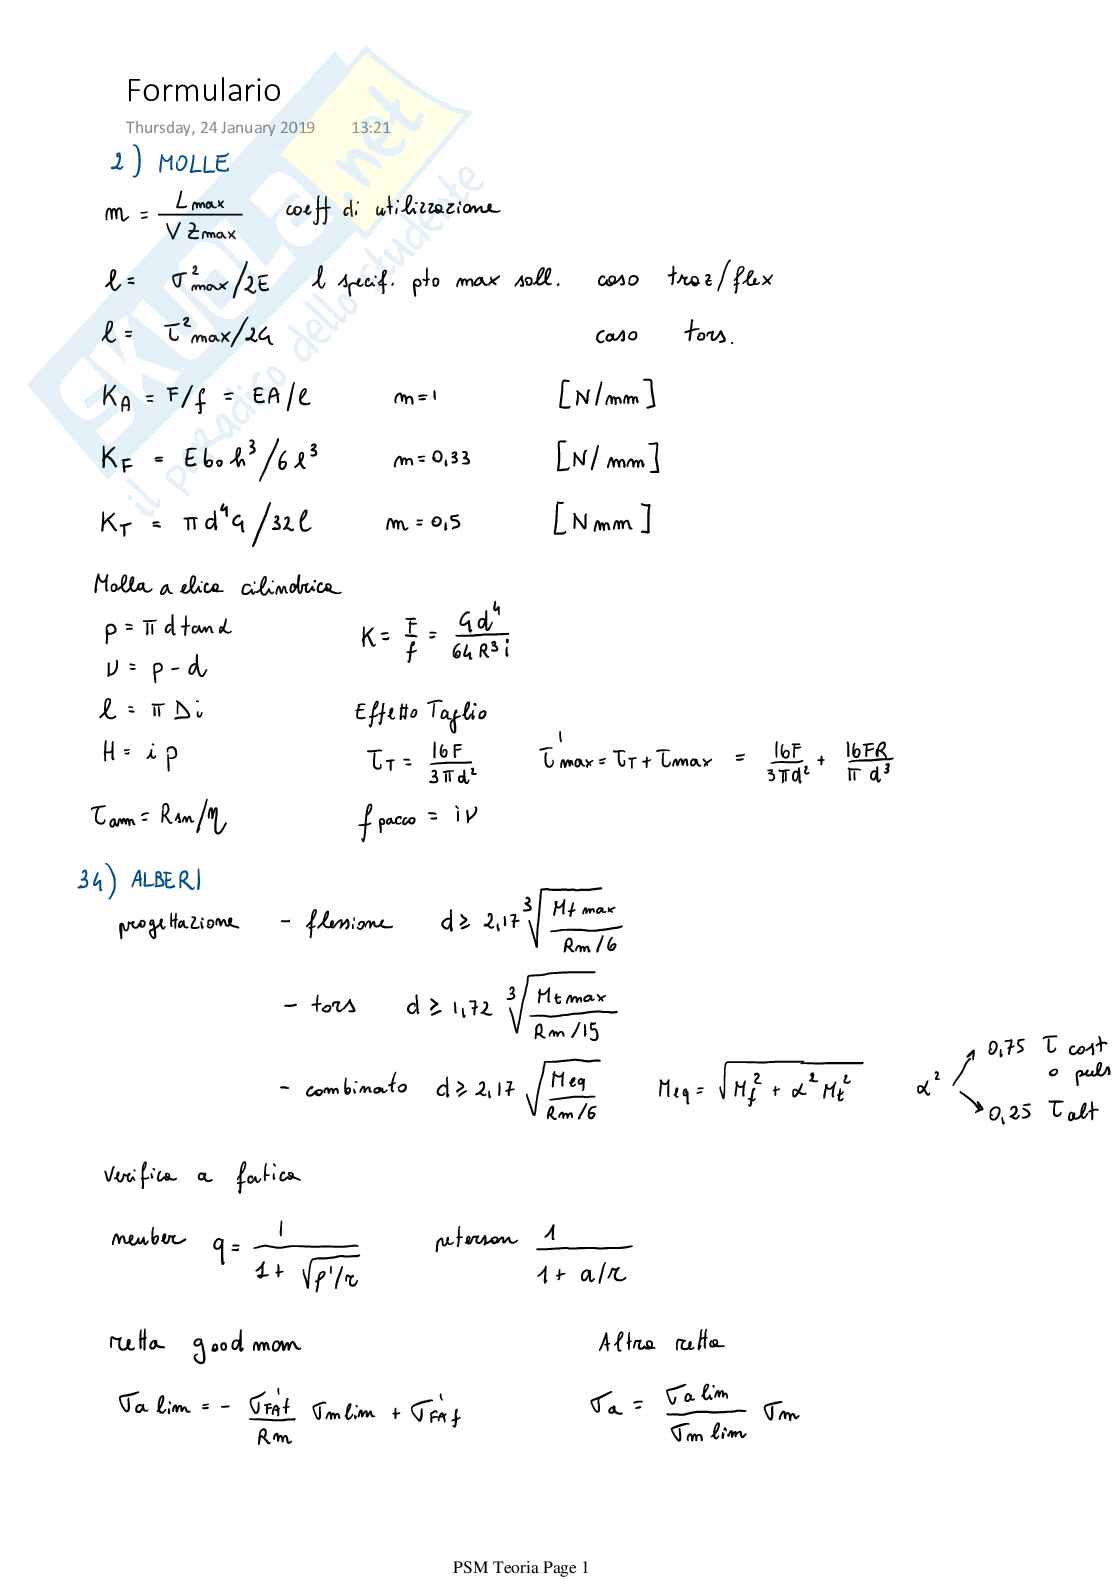 Formulario
Thursday, 24 January 2019 13:21
2) MOLLE
m = Lmax / V Zmax coeff di utilizzazione
l = σ²max/2E l specif. pto max soll. caso traz/flex
l = τ²max/2G caso tors.
K_A = F/f = EA/l m=1 [N/mm]
K_F = E b₀ h³/6 l³ m=0,33 [N/mm]
K_T = π d⁴ G/32 l m=0,5 [N mm]
Molla a elica cilindrica
p = π d tan α K = F/f = G d⁴ / 64 R³ i
ν = p - d
l = π D i Effetto Taglio
H = i p τ_T = 16F / 3πd² τ'max = τ_T + τmax = 16F / 3πd² + 16FR / π d³
τamm = Rsn/η f pacco = i ν
34) ALBERI
progettazione - flessione d ≥ 2,17 ∛(Mf max / Rm/6)
- tors d ≥ 1,72 ∛(Mt max / Rm/15)
- combinato d ≥ 2,17 √(Meq / Rm/6) Meq = √(Mf² + α² Mt²) α² 0,75 τ cost
o puls
0,25 τ alt
Verifica a fatica
neuber q = 1 / 1 + √ρ'/r peterson 1 / 1 + a/r
retta goodman Altra retta
σa lim = - σ'FAf / Rm σm lim + σ'FAf σa = σa lim / σm lim σm
PSM Teoria Page 1
SKUOLA.net
il paradiso dello studente